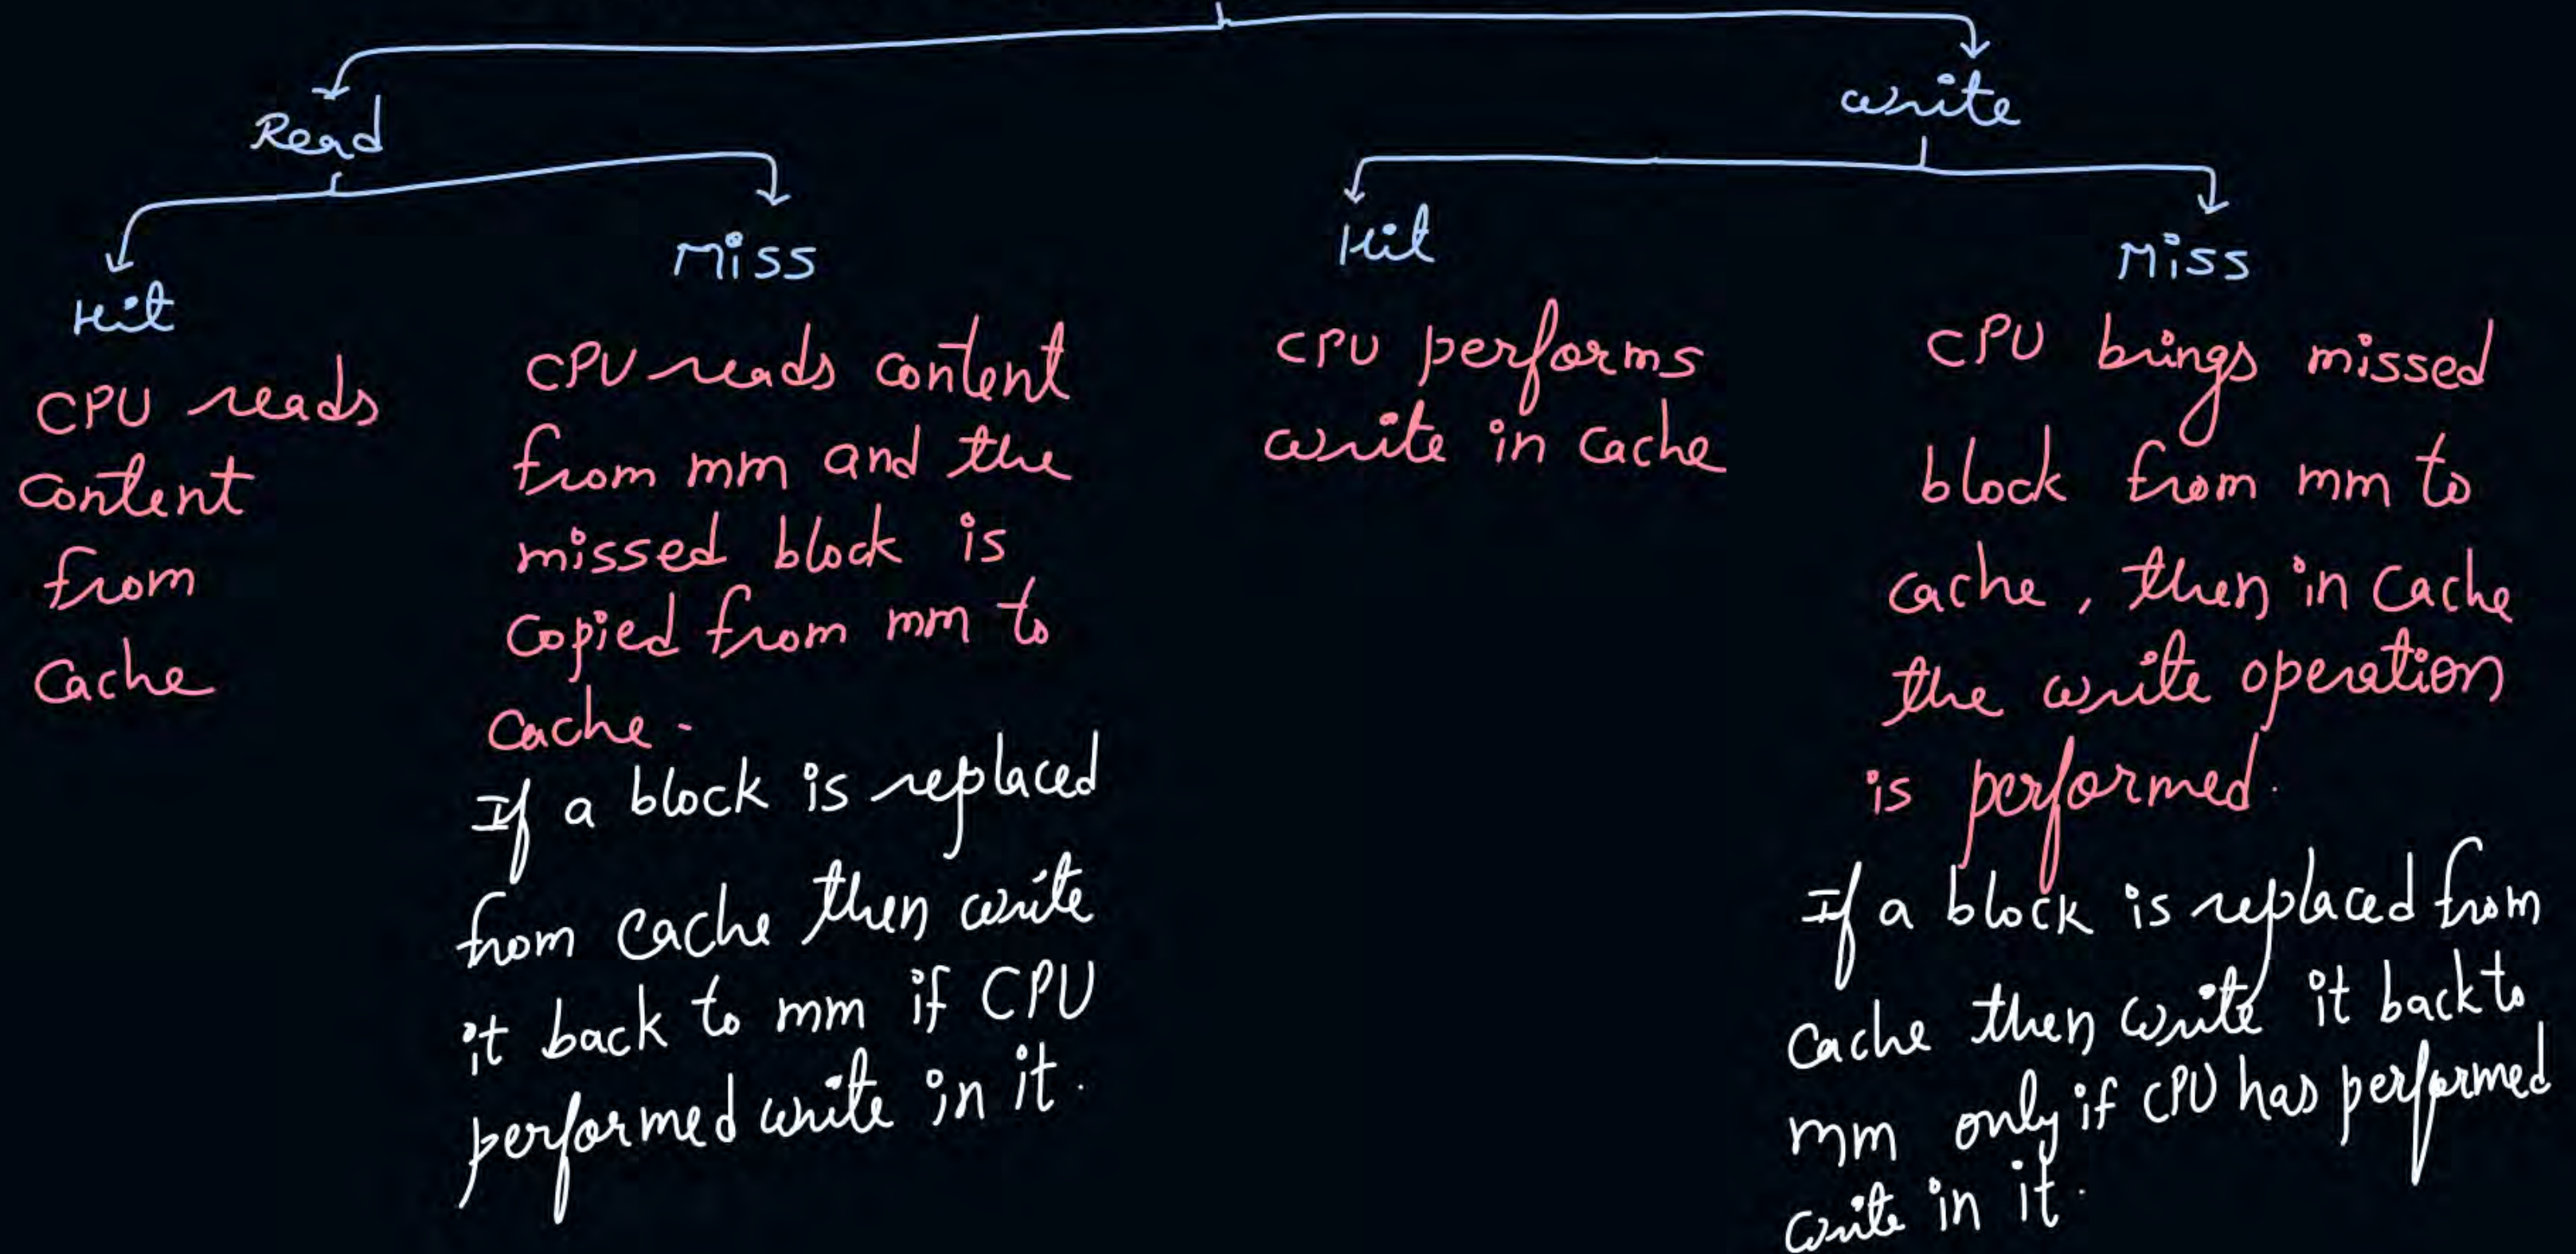 Read
Hit
CPU reads
content
from
Cache
Miss
CPU reads content
from mm and the
missed block is
copied from mm to
cache.
If a block is replaced
from cache then write
it back to mm if CPU
performed write in it.
write
Hit
CPU performs
write in cache
Miss
CPU brings missed
block from mm to
cache, then in cache
the write operation
is performed.
If a block is replaced from
cache then write it back to
mm only if CPU has performed
write in it.